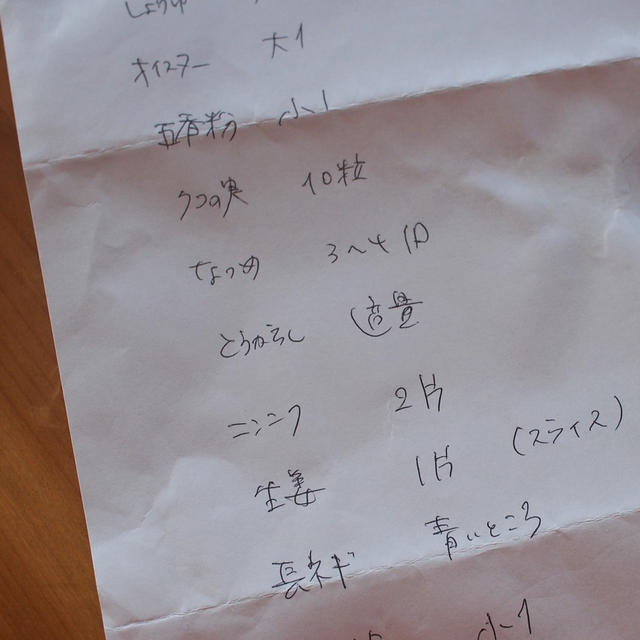 しょうゆ
オイスター 大1
五香粉 小1
クコの実 10粒
なつめ 3〜4コ
とうがらし 適量
ニンニク 2片
生姜 1片 (スライス)
長ネギ 青いところ
小1